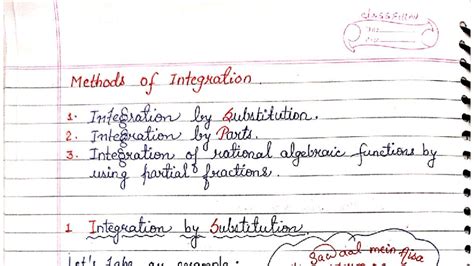 classmate
Date
Page
Methods of Integration.
1. Integration by Substitution.
2. Integration by Parts.
3. Integration of rational algebraic functions by
using partial fractions.
1 Integration by Substitution
Let's take an example:
Sawaal mein Aisa